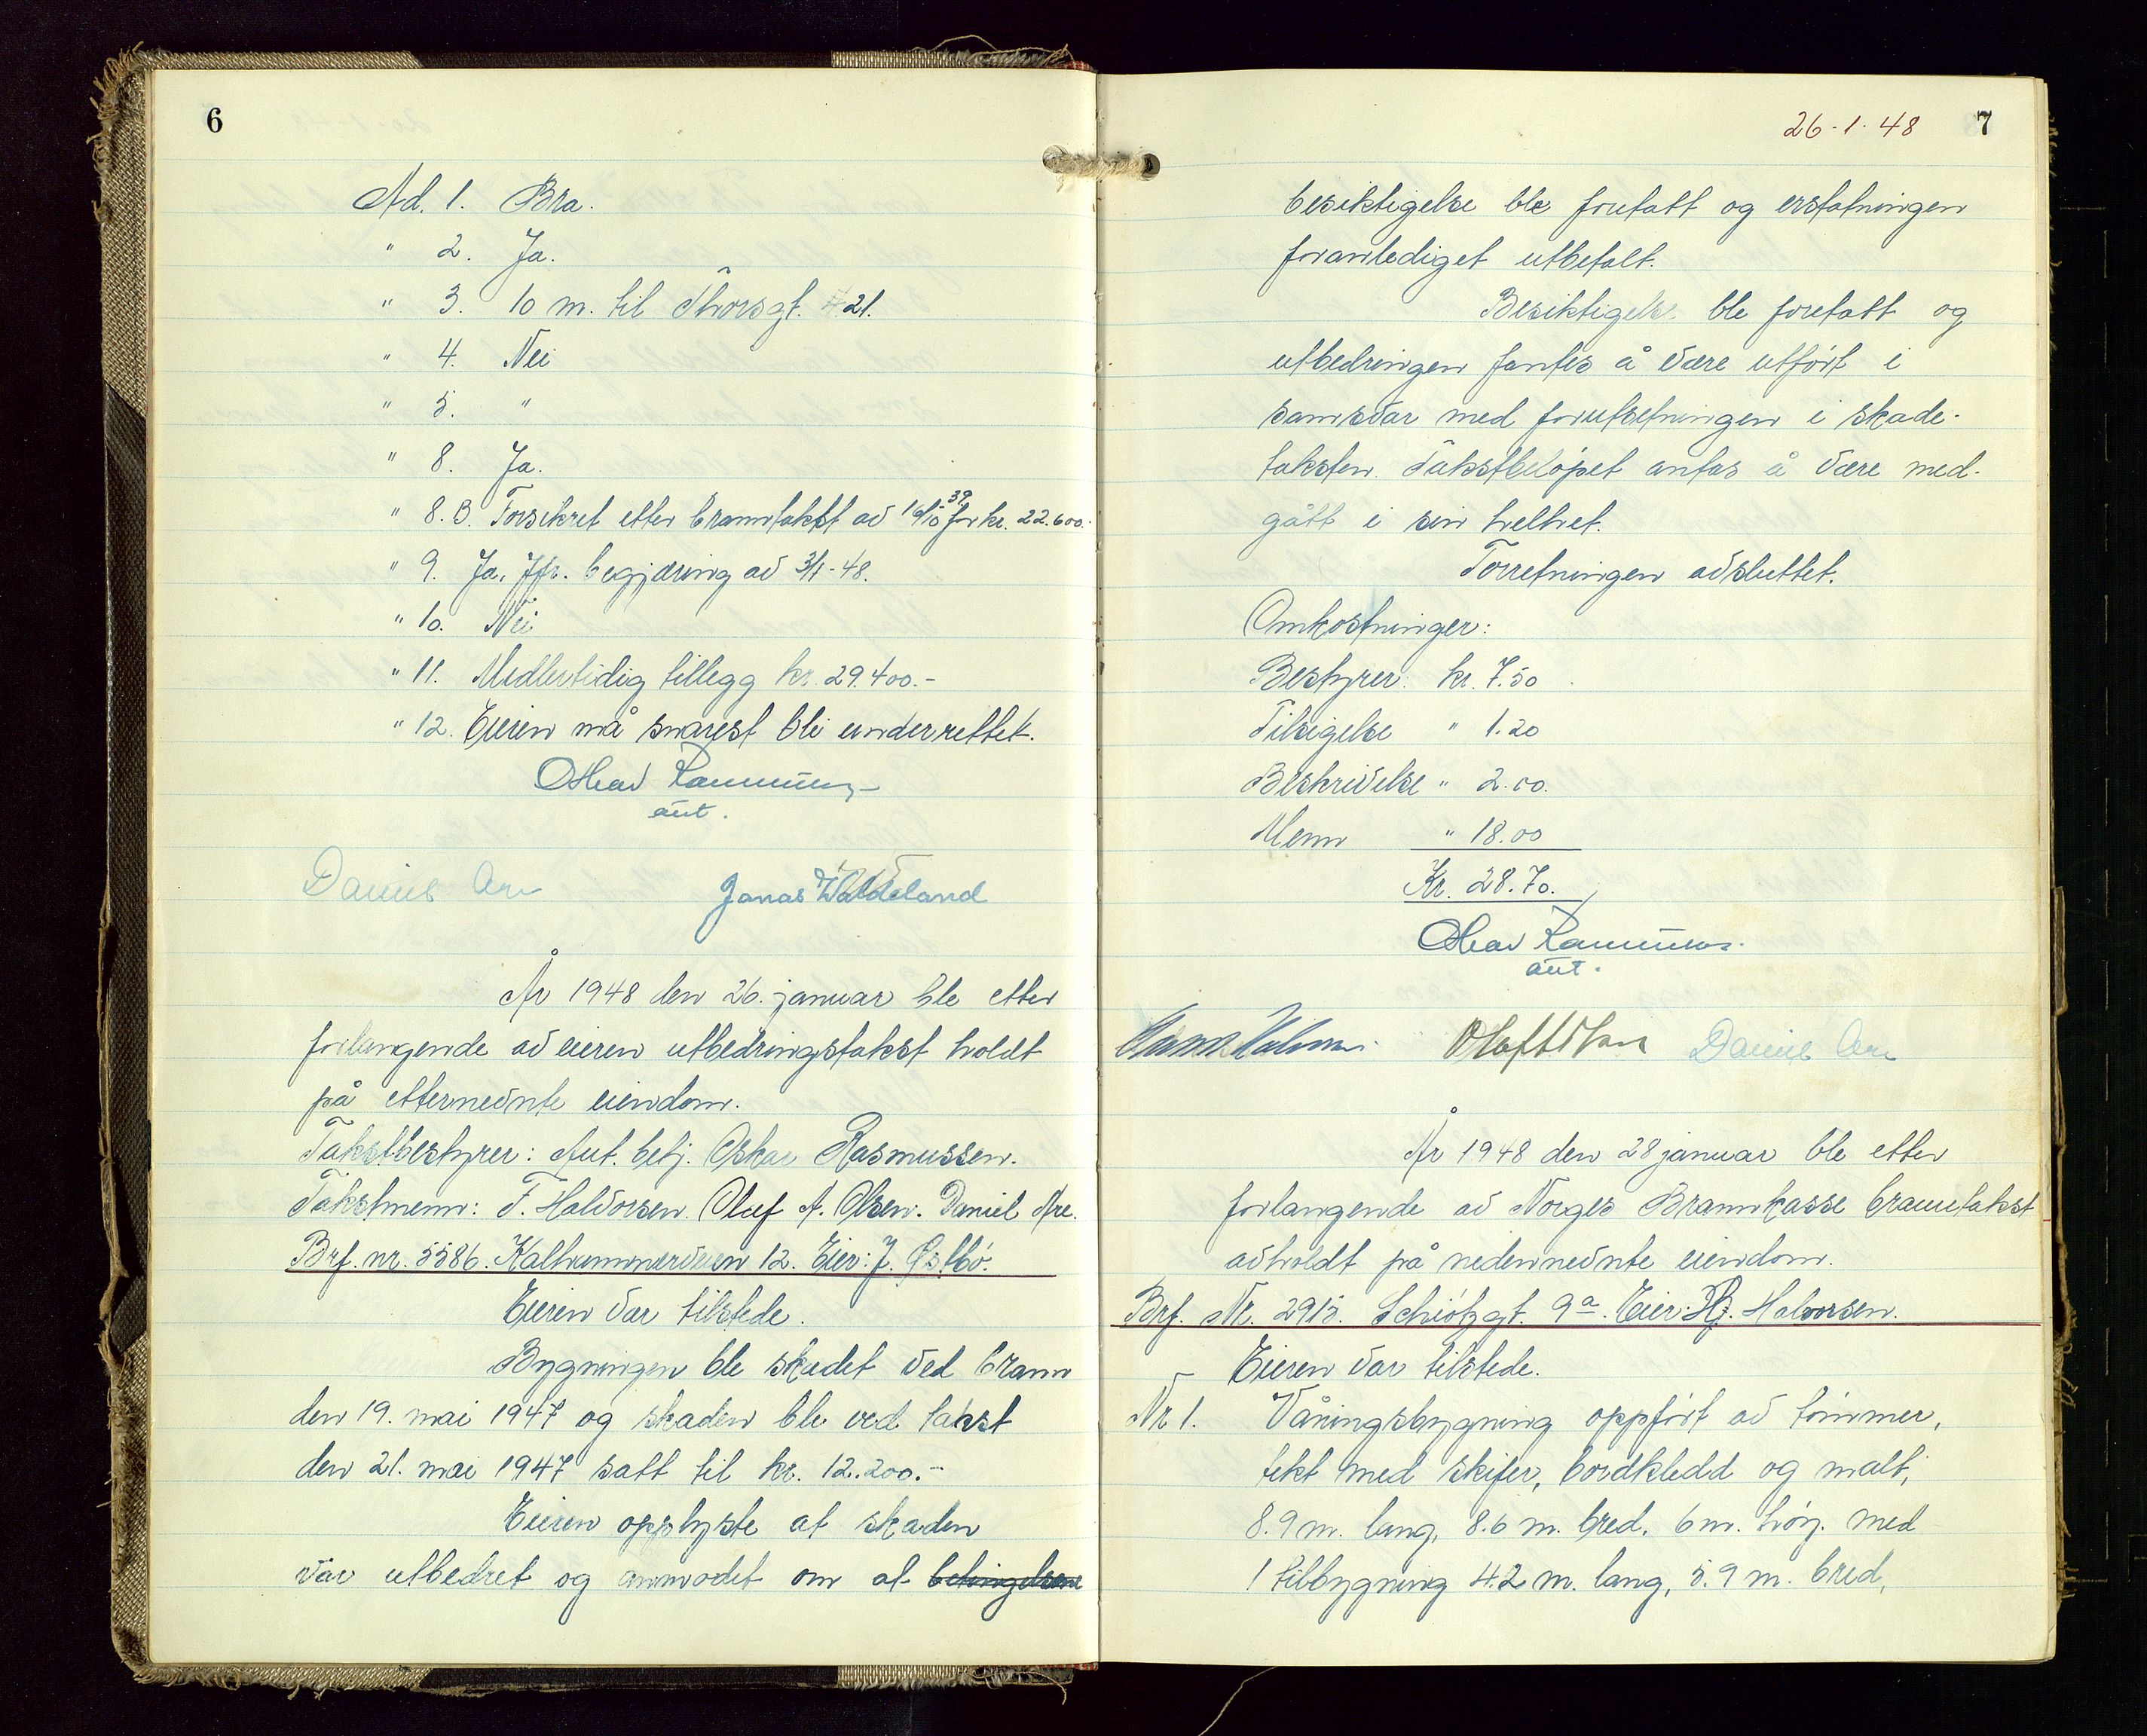 6
Ad. 1. Bra.
" 2. Ja.
" 3. 10 m. til Thorsgt. 21.
" 4. Nei
" 5. "
" 8. Ja.
" 8.B. Forsikret etter branntakst av 16/10 39 for kr. 22.600.-
" 9. Ja, Jfr. begjæring av 3/1-48.
" 10. Nei
" 11. Midlertidig tillegg kr. 29.400.-
" 12. Eieren må snarest bli underrettet.
Oskar Rasmussen
aut.
Daniel Are Jonas Waldeland
År 1948 den 26. januar ble etter
forlangende av eieren utbedringstakst holdt
på etternevnte eiendom.
Takstbestyrer: Aut. betj. Oskar Rasmussen.
Takstmenn: F. Halvorsen. Oluf A. Olsen. Daniel Are.
Brf. nr. 5586. Kalhammerveien 12. Eier: J. Østbø.
Eieren var tilstede.
Bygningen ble skadet ved brann
den 19. mai 1947 og skaden ble ved takst
den 21. mai 1947 satt til kr. 12.200.-
Eieren opplyste at skaden
var utbedret og anmodet om at betingelsene
26-1-48 7
besiktigelse ble foretatt og erstatningen
foranlediget utbetalt.
Besiktigelse ble foretatt og
utbedringen fantes å være utført i
samsvar med forutsetningen i skade-
taksten. Takstbeløpet antas å være med-
gått i sin helhet.
Forretningen avsluttet.
Omkostninger:
Bestyrer kr. 7.50
Tilsigelse " 1.20
Beskrivelse " 2.00.
Menn " 18.00
Kr. 28.70.
Oskar Rasmussen.
aut.
Olaf A Olsen Daniel Are
År 1948 den 28 januar ble etter
forlangende av Norges Brannkasse branntakst
avholdt på nedennevnte eiendom.
Brf. Nr. 2915. Schiötzgt. 9a. Eier: Hj. Halvorsen.
Eieren var tilstede.
Nr 1. Våningsbygning oppført av tømmer,
tekt med skifer, bordkledd og malt,
8.9 m. lang, 8.6 m. bred, 6 m. høy. med
1 tilbygning 4.2 m. lang, 5.9 m. bred,